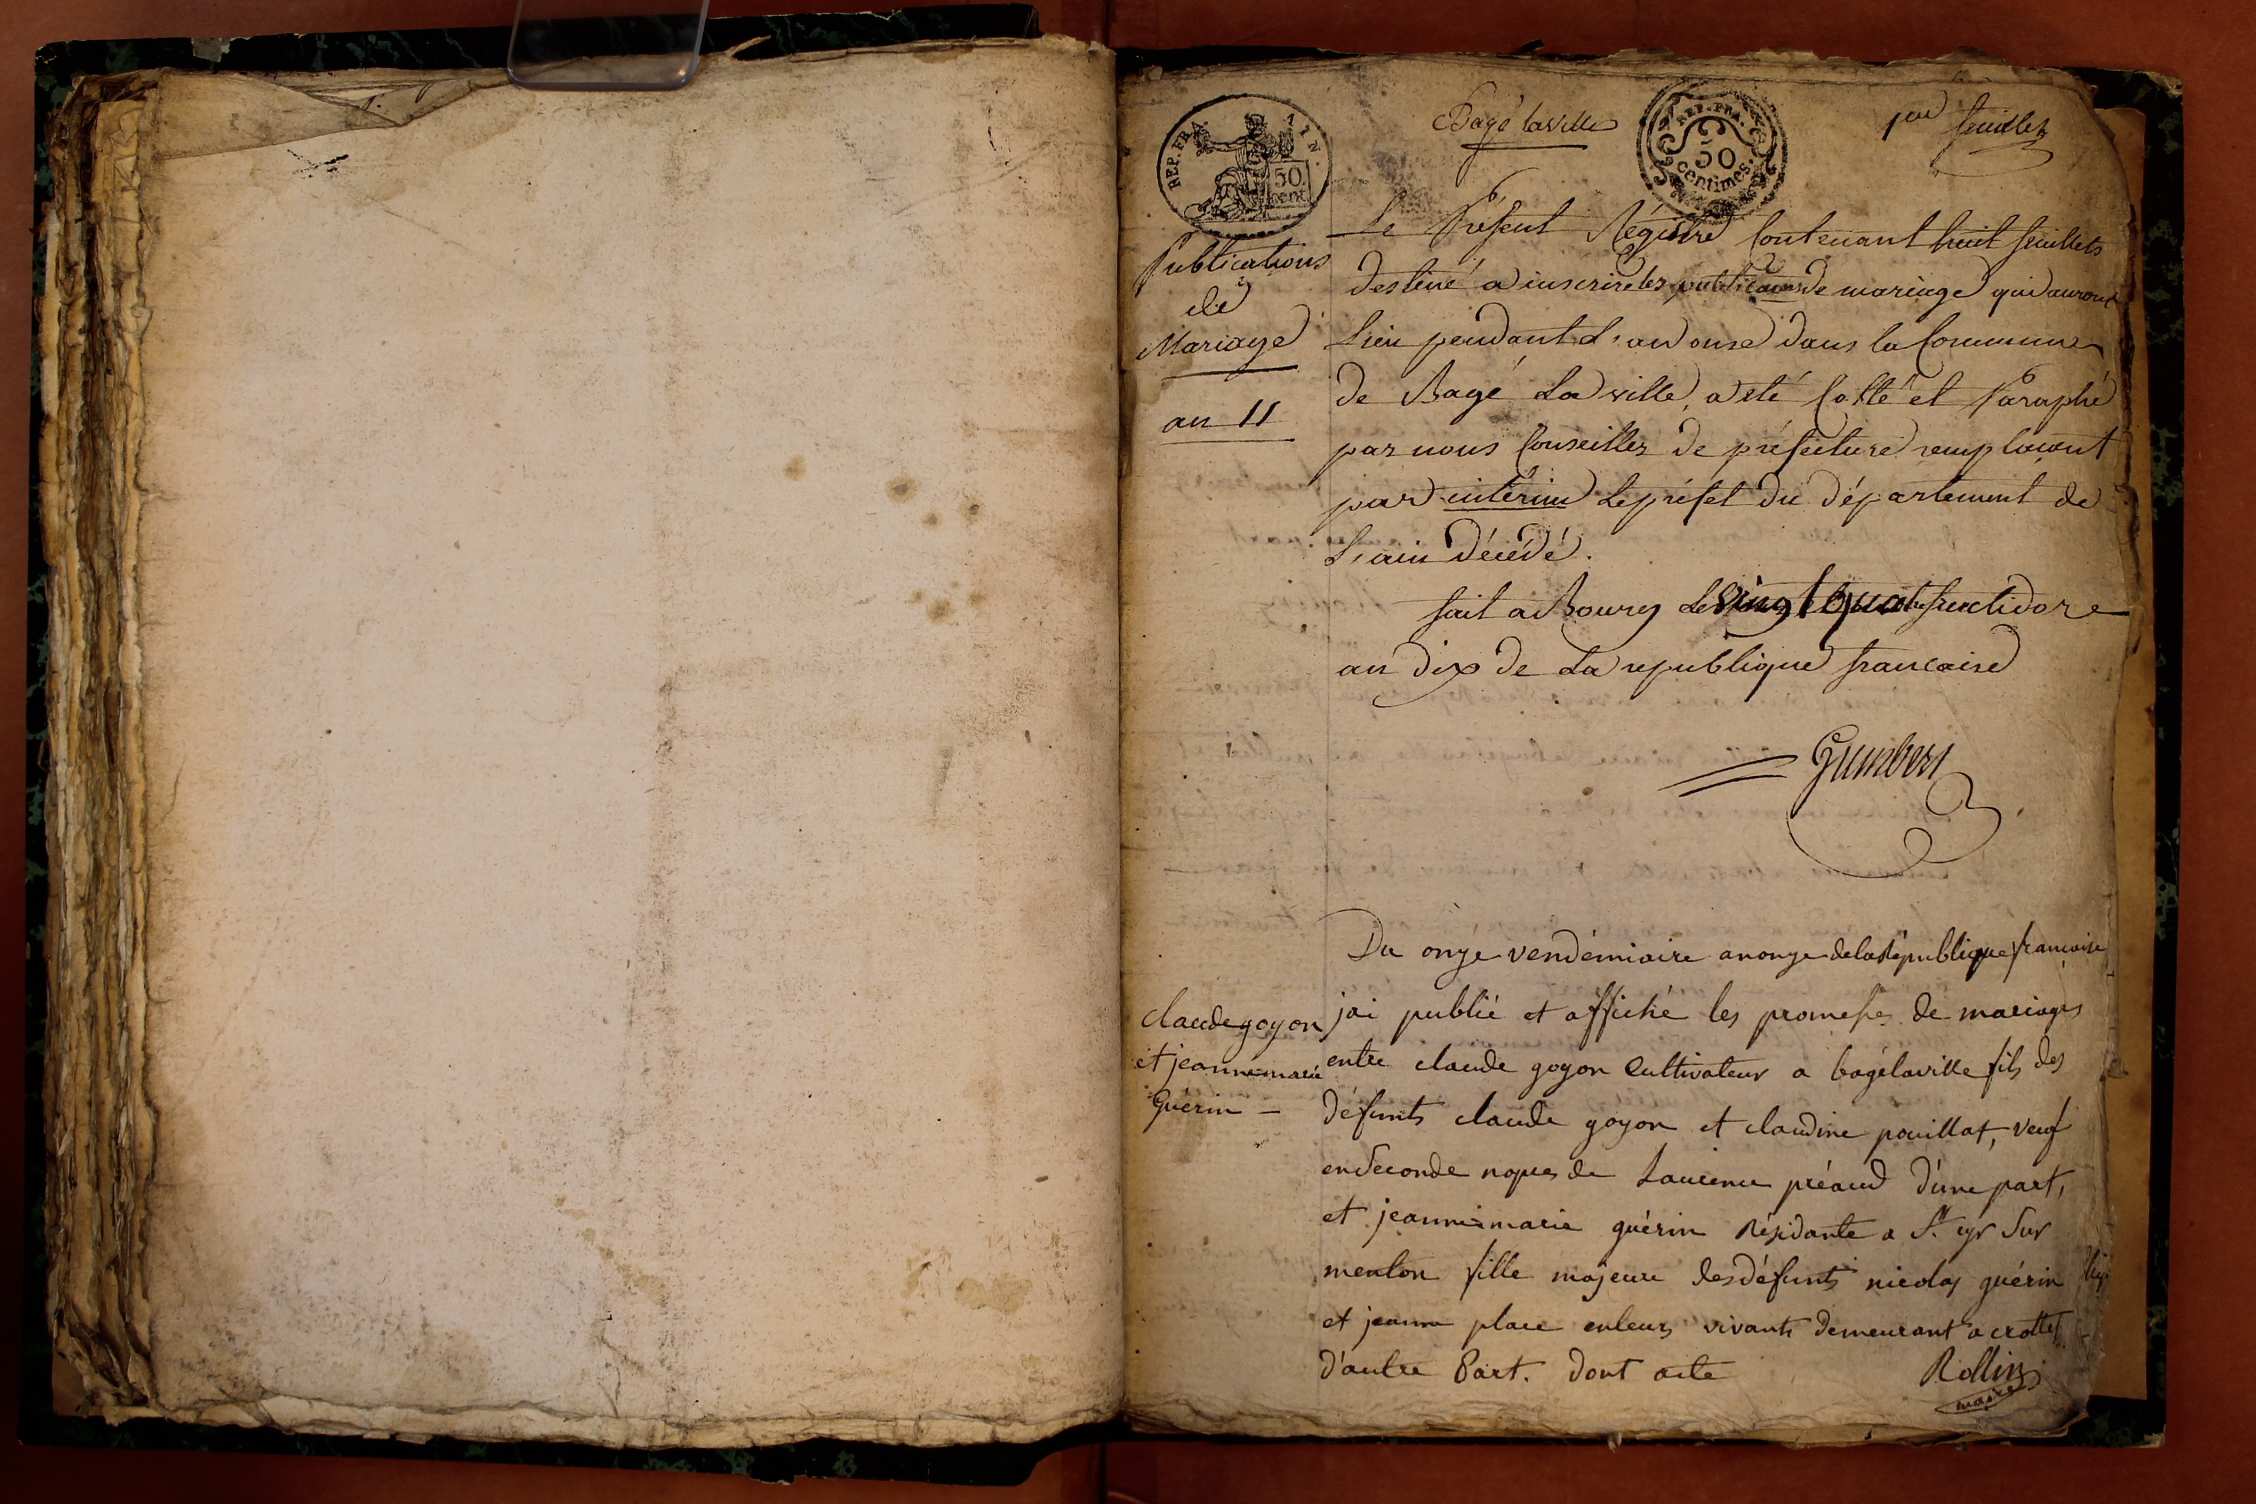 Bagé laville
1er feuillet
REP. FRA. AIN.
50 cent
REP. FRA.
50
centimes.
Publications
de
Mariage
an 11
Le Présent Régistre Contenant huit feuillets
destiné a inscrire les publications de mariage qui auront
Lieu pendant L'an onse dans la Commune
de Bagé La ville, a eté Cotté et Paraphé
par nous Conseiller de préfecture remplacant
par intérim Le préfet du département de
L'ain décédé.
fait a Bourg Le vingt quatre fructidor
an dix de La republique francaise
Du onze vendémiaire an onze de la République francaise
claude goyon
et jeanne marie
Guérin —
jai publié et affiché les promesses de mariages
entre claude goyon Cultivateur a bagélaville fils des
défunts claude goyon et claudine pouillat, veuf
en Seconde noces de Laurence préaud d'une part,
et jeanne marie guérin Résidante a St. cyr Sur
menton fille majeure des défunts nicolas guérin
et jeanne place en leurs vivants demeurant a crottet
d'autre Part. dont acte
Rollin
maire